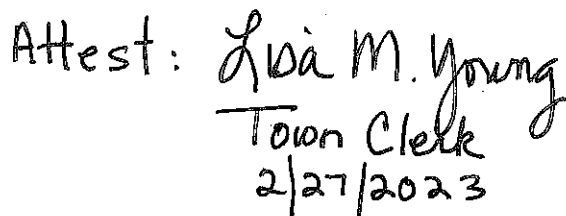 Attest: Lisa M. Young
Town Clerk
2/27/2023